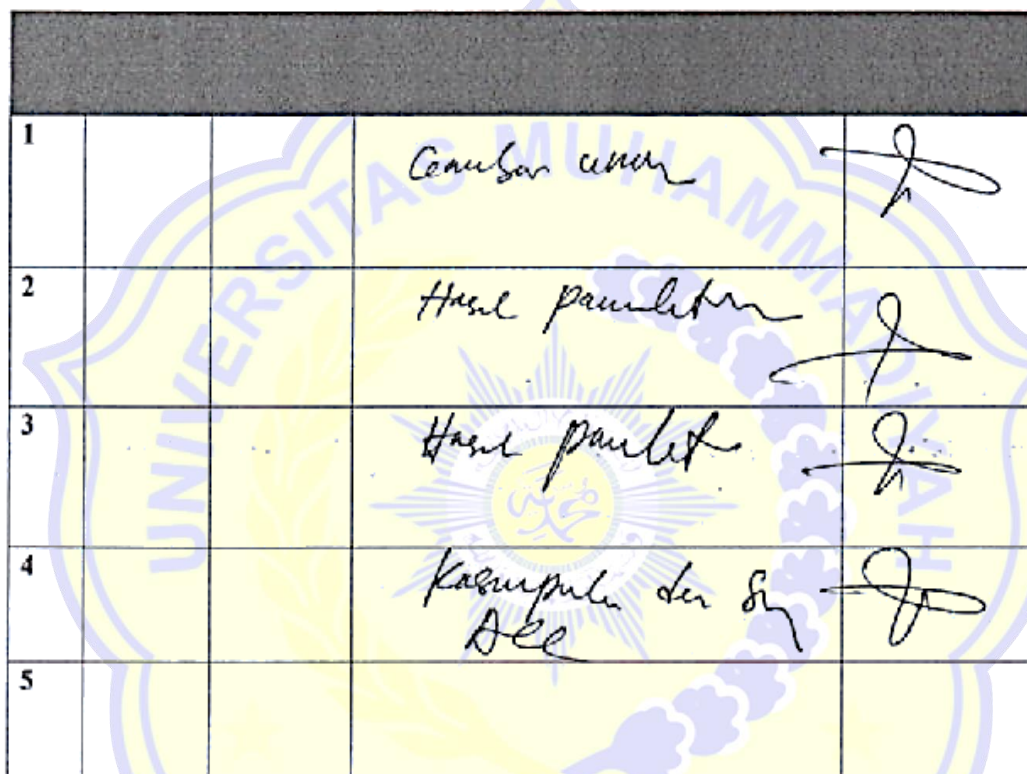 1 Gambar umum
2 Hasil penelitian
3 Hasil penelit
4 Kesimpulan dan
Acc
5
UNIVERSITAS MUHAMMADIYAH